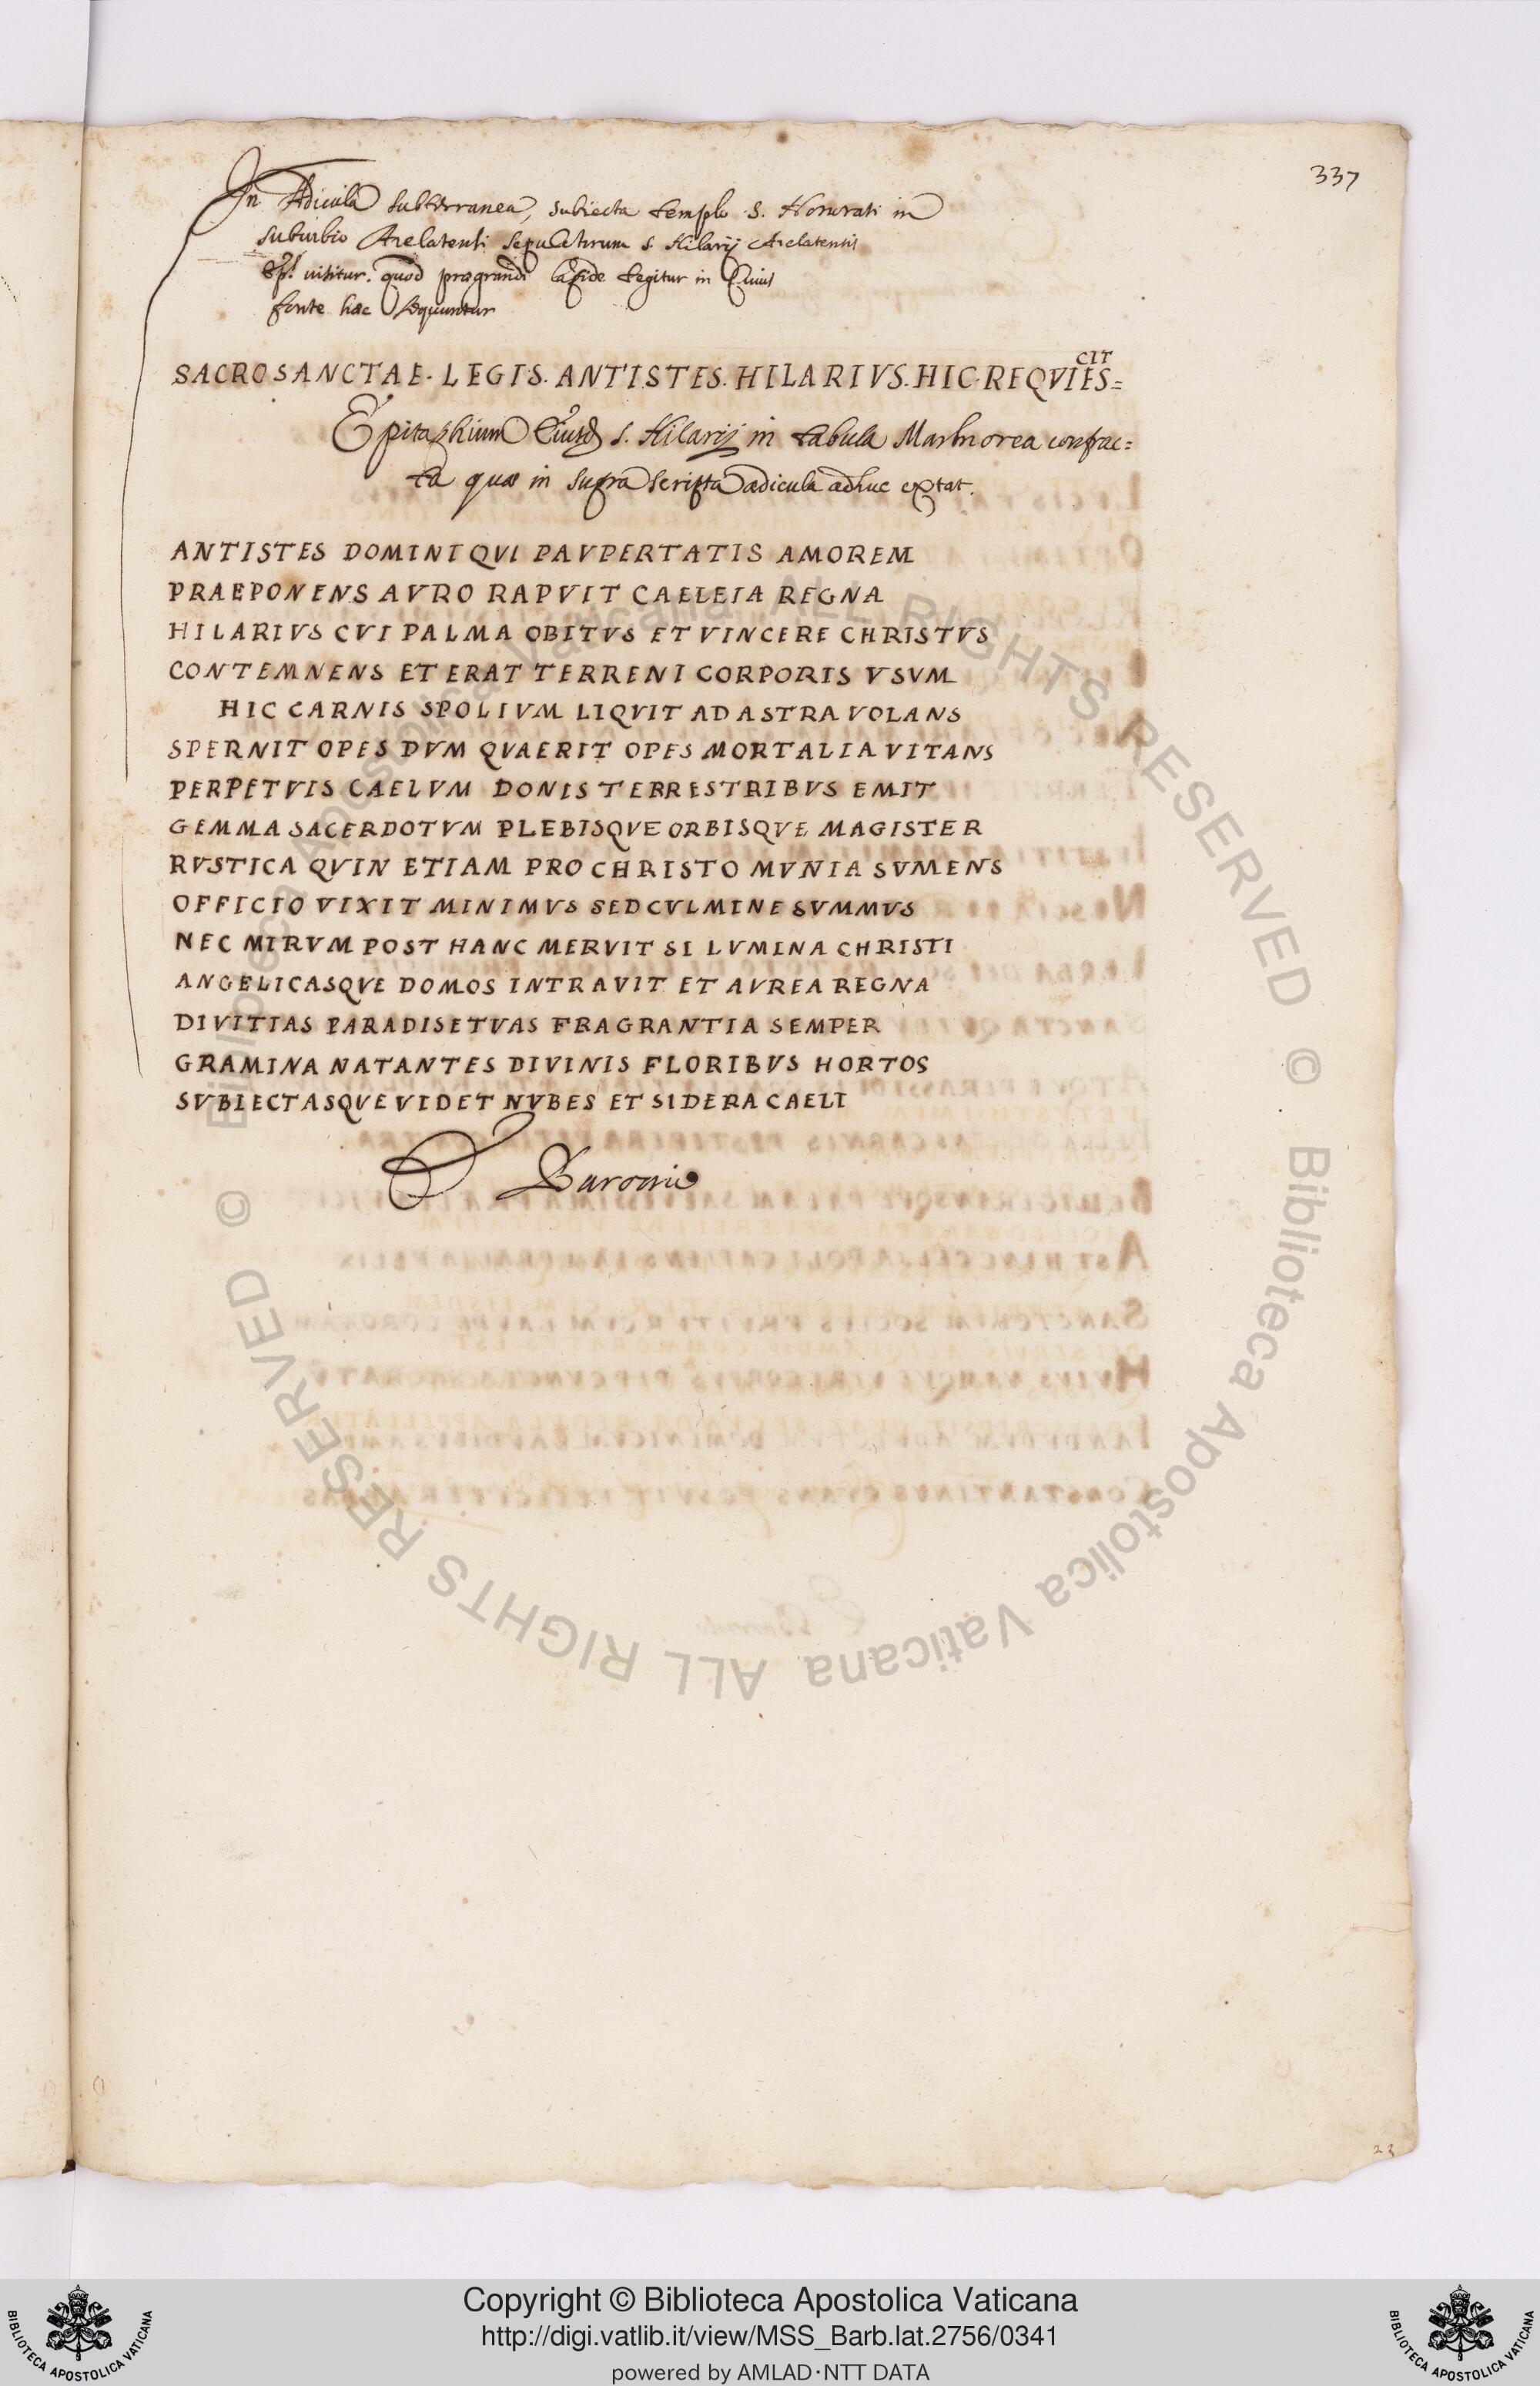 337
In Ædicula subterranea, subiecta templo S. Honorati in
suburbio Arelatensi sepulchrum s. Hilarij Arelatensis
Epi. visitur. quod prægrandi lapide tegitur in Cuius
fonte hæc sequuntur
CIT
SACROSANCTAE. LEGIS. ANTISTES. HILARIVS. HIC. REQVIES=
Epitaphium Eiusd s. Hilarij in tabula Marmorea confrac=
ta quæ in suprascripta ædicula adhuc extat.
ANTISTES DOMINI QVI PAVPERTATIS AMOREM
PRAEPONENS AVRO RAPVIT CAELEIA REGNA
HILARIVS CVI PALMA OBITVS ET VINCERE CHRISTVS
CONTEMNENS ET ERAT TERRENI CORPORIS VSVM
HIC CARNIS SPOLIVM LIQVIT AD ASTRA VOLANS
SPERNIT OPES DVM QVAERIT OPES MORTALIA VITANS
PERPETVIS CAELVM DONIS TERRESTRIBVS EMIT
GEMMA SACERDOTVM PLEBISQVE ORBISQVE MAGISTER
RVSTICA QVIN ETIAM PRO CHRISTO MVNIA SVMENS
OFFICIO VIXIT MINIMVS SED CVLMINE SVMMVS
NEC MIRVM POST HANC MERVIT SI LVMINA CHRISTI
ANGELICASQVE DOMOS INTRAVIT ET AVREA REGNA
DIVITIAS PARADISETVAS FRAGRANTIA SEMPER
GRAMINA NATANTES DIVINIS FLORIBVS HORTOS
SVBIECTASQVE VIDET NVBES ET SIDERA CAELI
23
© Biblioteca Apostolica Vaticana ALL RIGHTS RESERVED © Biblioteca Apostolica Vaticana ALL RIGHTS RESERVED
BIBLIOTECA APOSTOLICA VATICANA
Copyright © Biblioteca Apostolica Vaticana
http://digi.vatlib.it/view/MSS_Barb.lat.2756/0341
powered by AMLAD·NTT DATA
BIBLIOTECA APOSTOLICA VATICANA